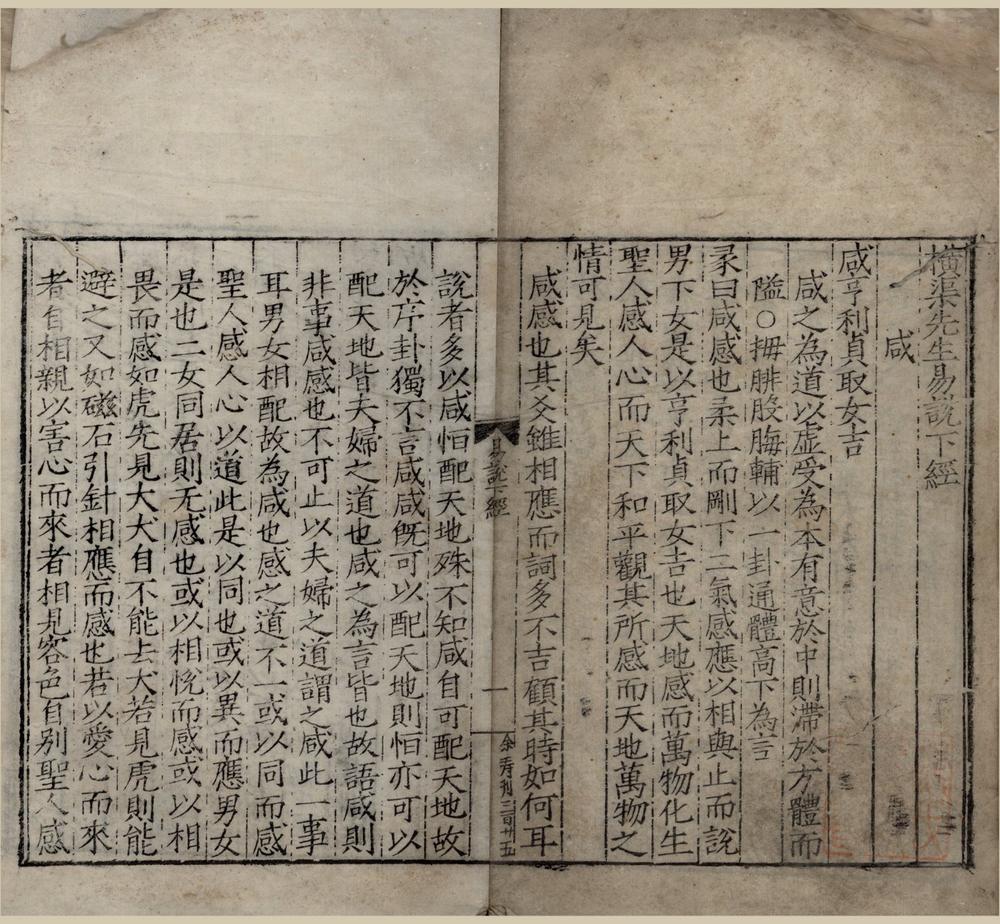 橫渠先生易說下經
咸
咸亨利貞取女吉
咸之為道以虛受為本有意於中則滯於方體而
隘○拇腓股脢輔以一卦通體高下為言
彖曰咸感也柔上而剛下二氣感應以相與止而說
男下女是以亨利貞取女吉也天地感而萬物化生
聖人感人心而天下和平觀其所感而天地萬物之
情可見矣
咸感也其爻雖相應而詞多不吉顧其時如何耳
易說下經
一
余秀刊三百廿五
說者多以咸恒配天地殊不知咸自可配天地故
於序卦獨不言咸咸旣可以配天地則恒亦可以
配天地皆夫婦之道也咸之為言皆也故語咸則
非事咸感也不可止以夫婦之道謂之咸此一事
耳男女相配故為咸也感之道不一或以同而感
聖人感人心以道此是以同也或以異而應男女
是也二女同居則无感也或以相恱而感或以相
畏而感如虎先見犬犬自不能去犬若見虎則能
避之又如磁石引針相應而感也若以愛心而來
者自相親以害心而來者相見容色自別聖人感